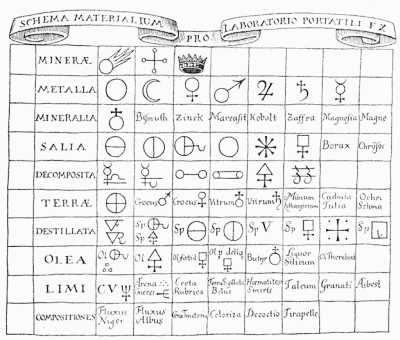 SCHEMA MATERIALIUM
PRO
LABORATORIO PORTATILI F X
MINERÆ
METALLA
MINERALIA Bismuth Zinck Marcasit Kobolt Zaffra Magnesia Magne
SALIA Borax Chrijsoc
DECOMPOSITA
TERRÆ Crocus Crocus Vitrum Vitrum Minium Cadmia Tutia Ochra Schma
DESTILLATA Sp Sp Sp Sp Sp V Sp Sp
OLEA Ol Ol Ol fœtid Ol p deliq Butyr Liquor Silicum Ol Therebent
LIMI CV Arena Creta Rubrica Terra Sigillata Bolus Hæmatites Smiris Talcum Granati Asbest
COMPOSITIONES Fluxus Niger Fluxus Albus Coloriza Decoctio Tirapelle